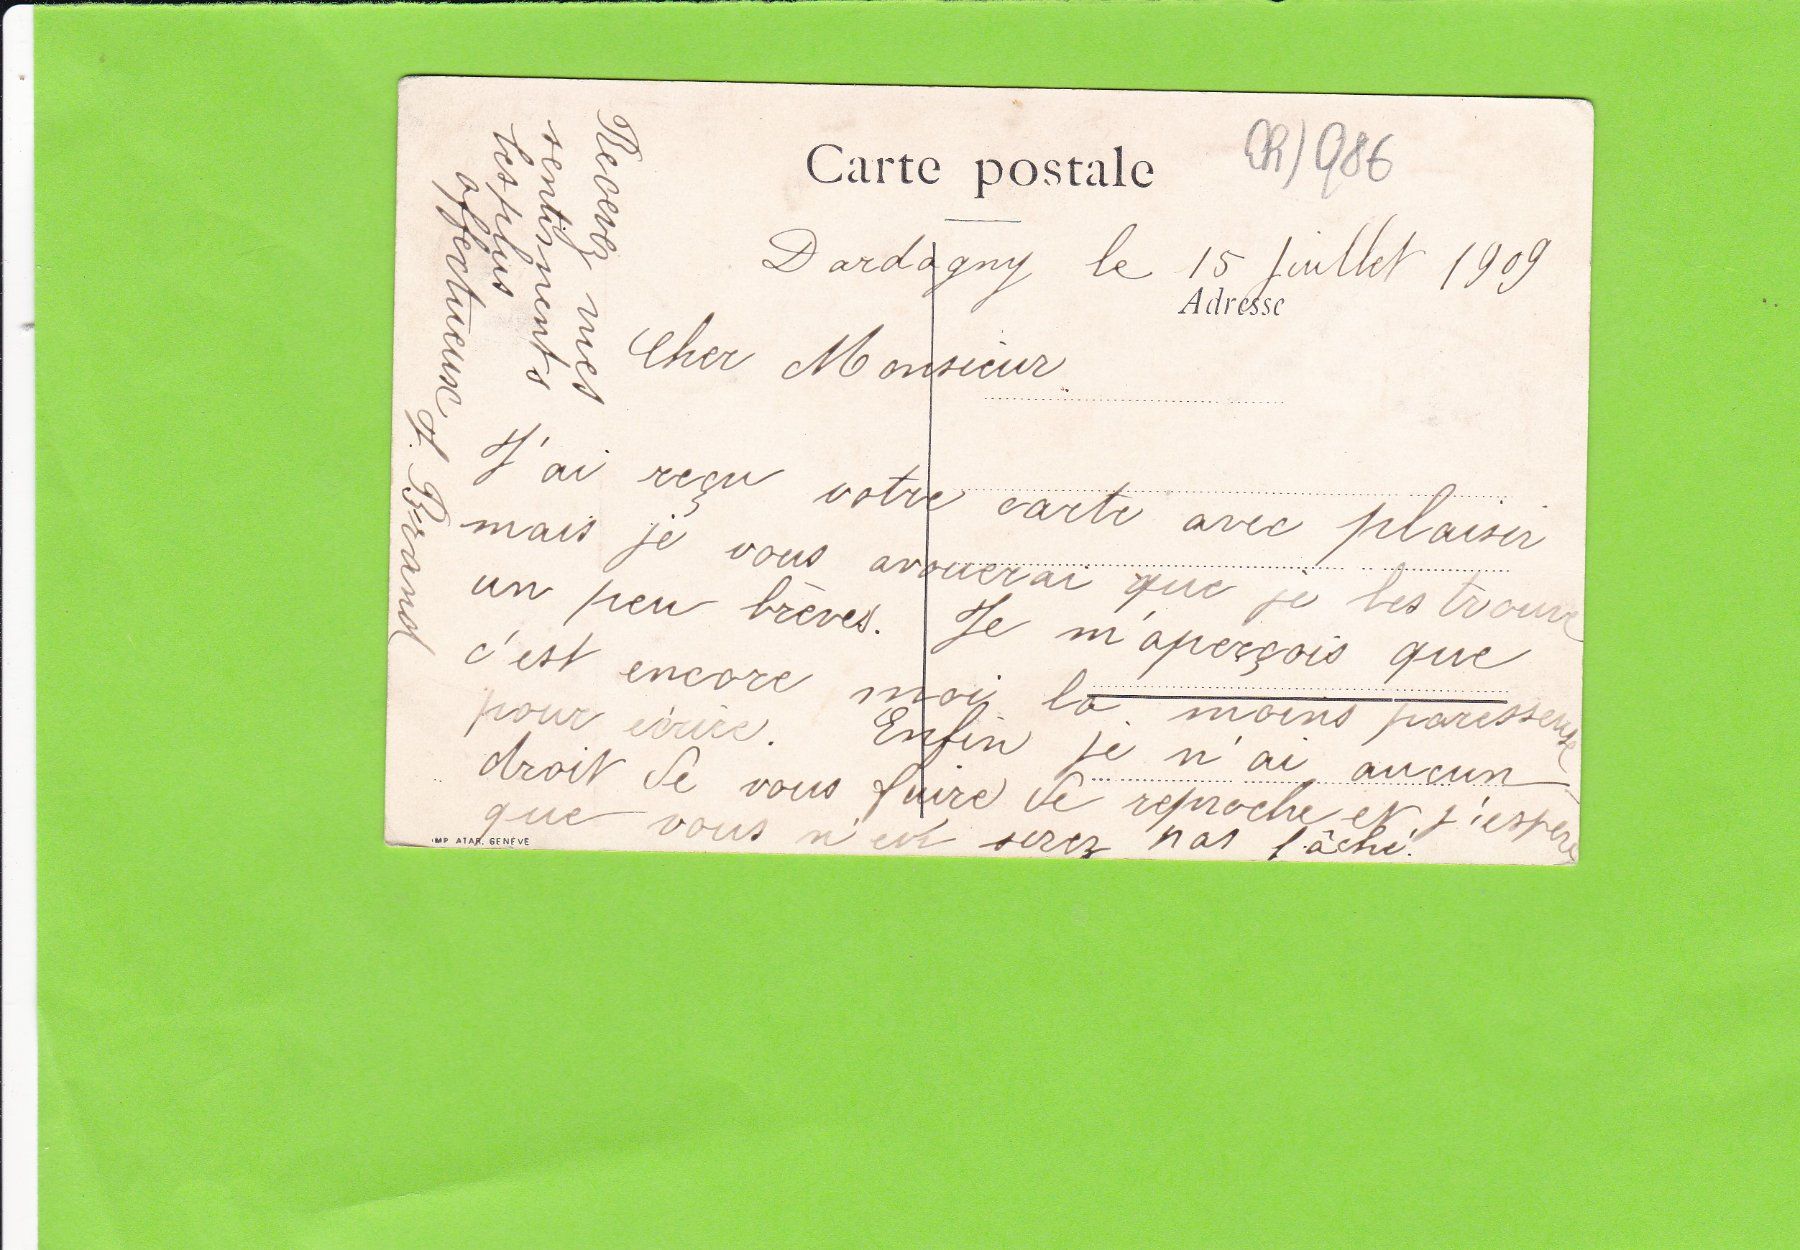 Carte postale
CR) 986
Dardagny le 15 juillet 1909
Adresse
Cher Monsieur
J'ai reçu votre carte avec plaisir
mais je vous avouerai que je les trouve
un peu brèves. Je m'aperçois que
c'est encore moi la moins paresseuse
pour écrire. Enfin je n'ai aucun
droit de vous faire de reproche et j'espère
que vous n'en serez pas fâché.
Recevez mes
sentiments
les plus
affectueux
Brand
IMP ATAR. GENÈVE